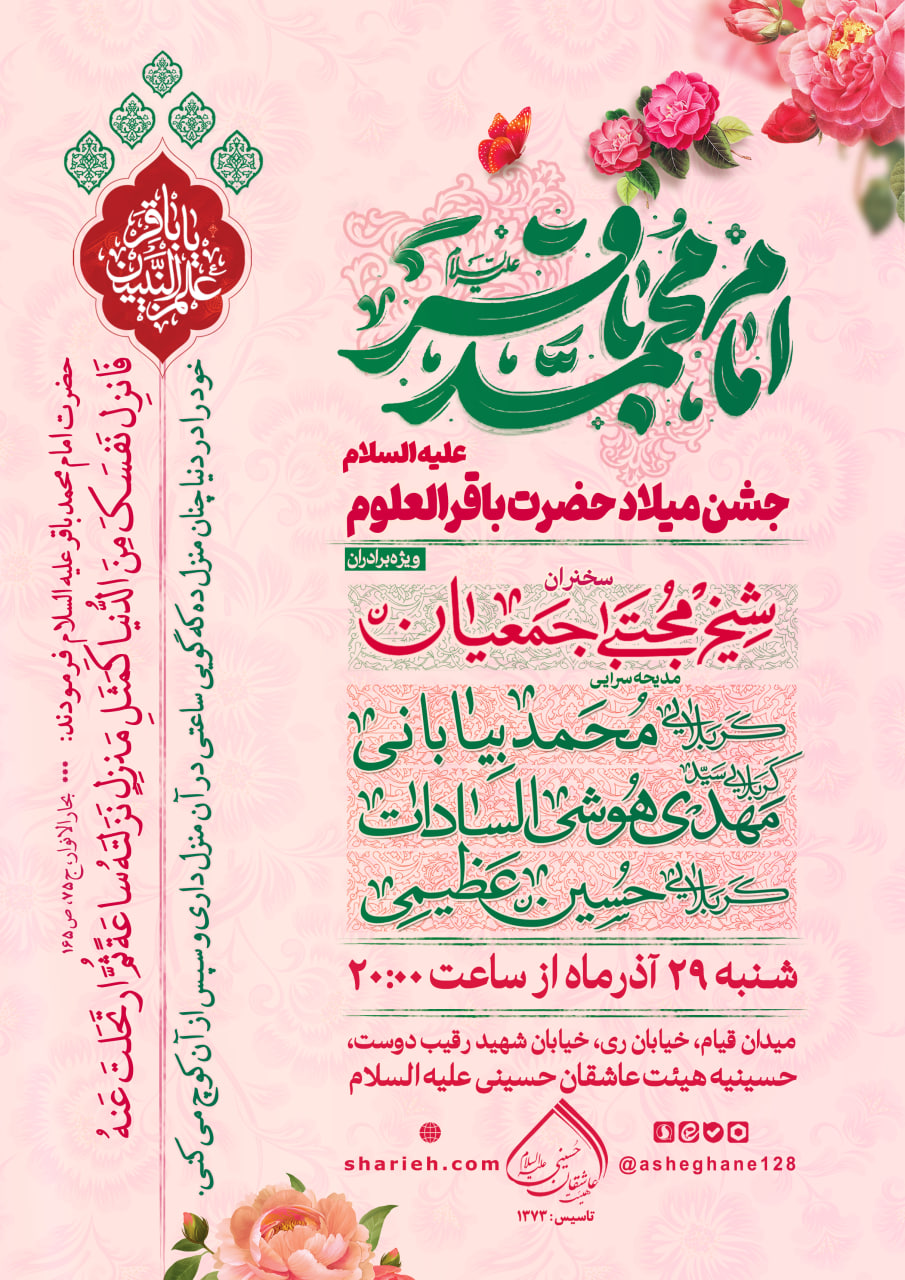 امام محمد باقر
علیه السلام
علیه السلام
جشن میلاد حضرت باقرالعلوم
ویژه برادران
سخنران
شیخ مجتبی اجمعیان
مدیحه سرایی
کربلایی محمد بیابانی
کربلایی سید مهدی هوشی السادات
کربلایی حسین عظیمی
شنبه ۲۹ آذرماه از ساعت ۲۰:۰۰
میدان قیام، خیابان ری، خیابان شهید رقیب دوست،
حسینیه هیئت عاشقان حسینی علیه السلام
@asheghane128
sharieh.com
هیئت عاشقان حسینی علیه السلام
تاسیس: ۱۳۷۳
یا باقر
علم النبیین
حضرت امام محمد باقر علیه السلام فرمودند:
فَانزِل نَفسَکَ مِنَ الدُّنیا کَمَثَلِ مَنزِلٍ نَزَلتَهُ ساعَةً ثُمَّ ارتَحَلتَ عَنهُ
خود را در دنیا چنان منزل ده که گویی ساعتی در آن منزل داری و سپس از آن کوچ می کنی.
بحارالانوار، ج۷۵، ص۱۶۵